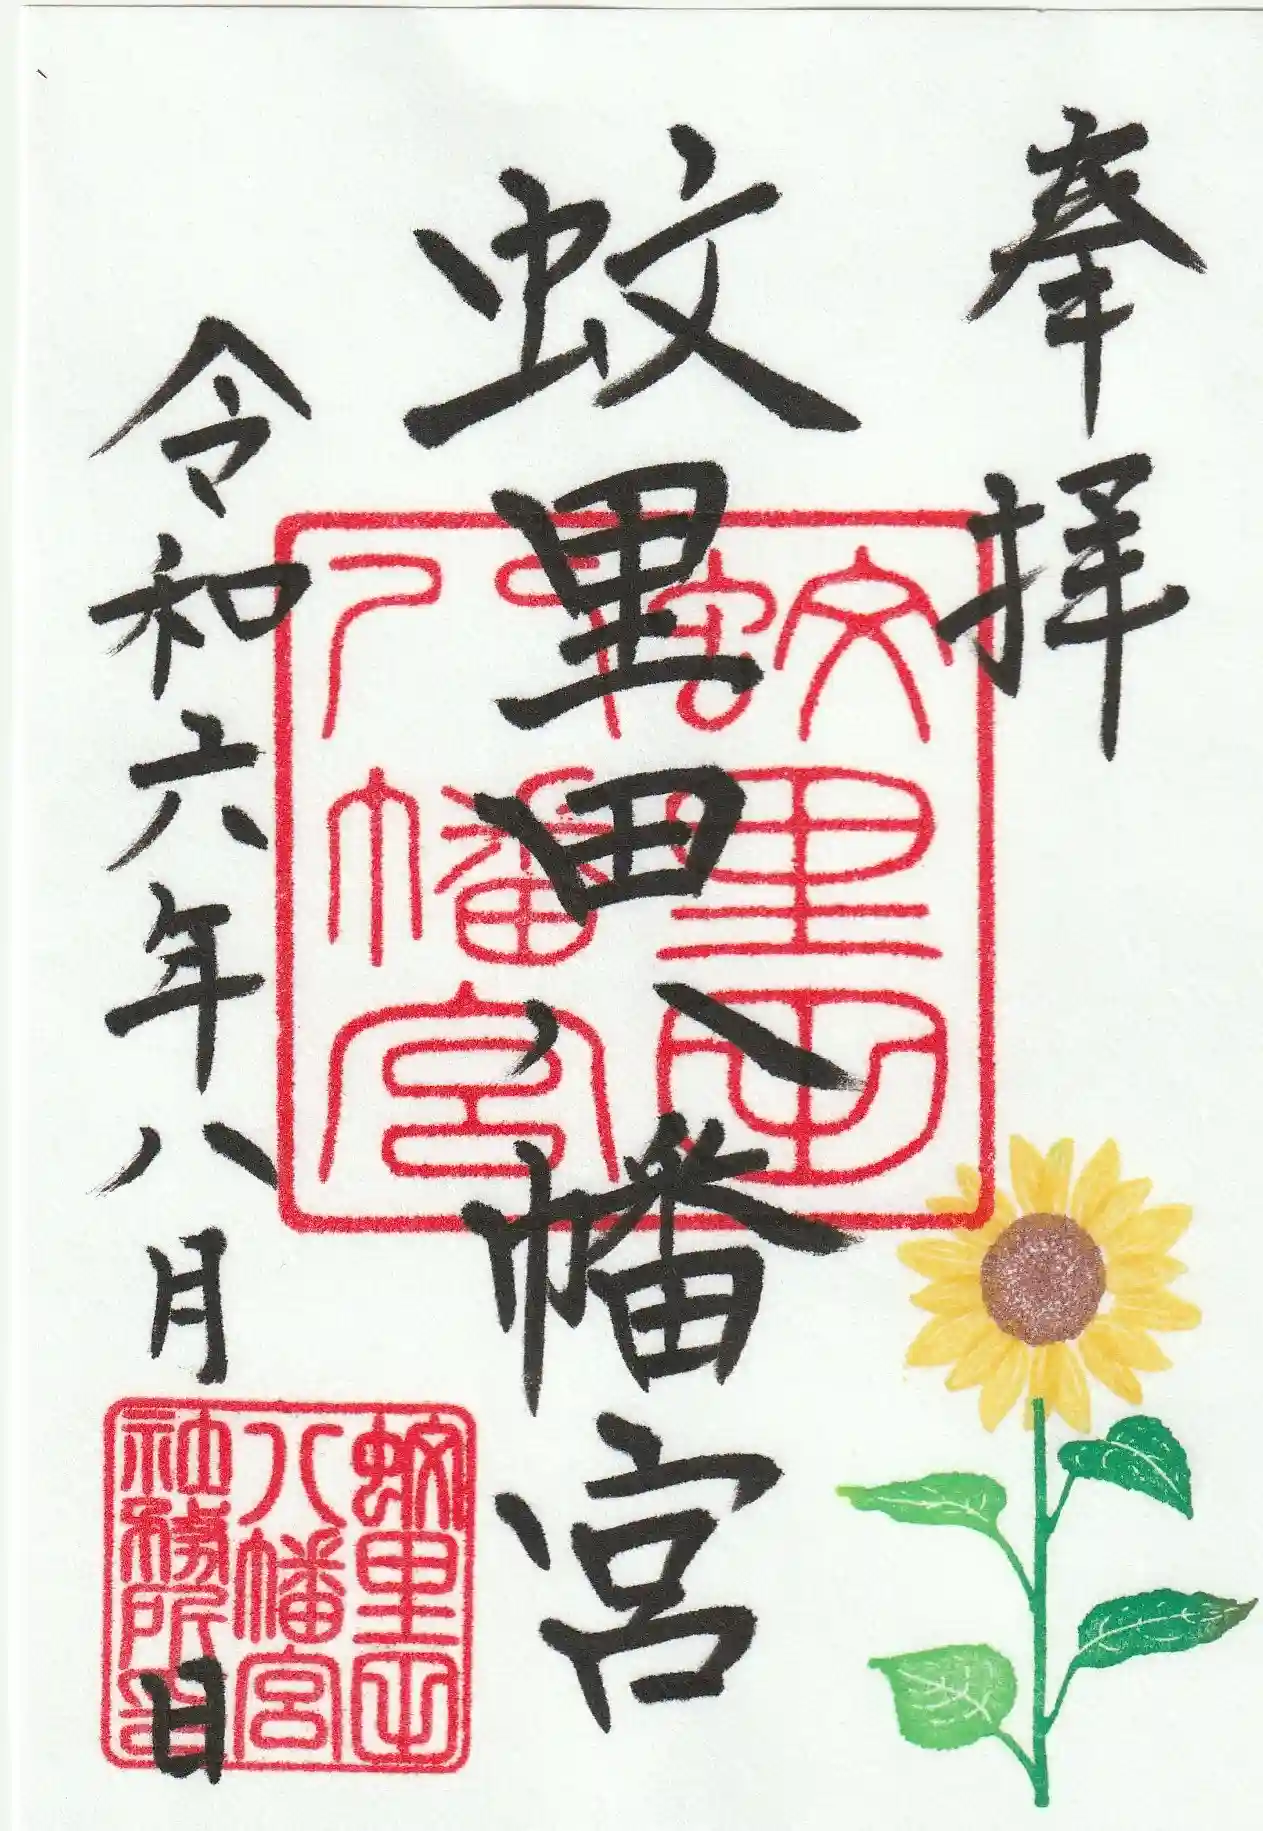 奉拝
蚊里田八幡宮
令和六年八月 日
蚊里田
八幡宮
蚊里田
八幡宮
社務所印